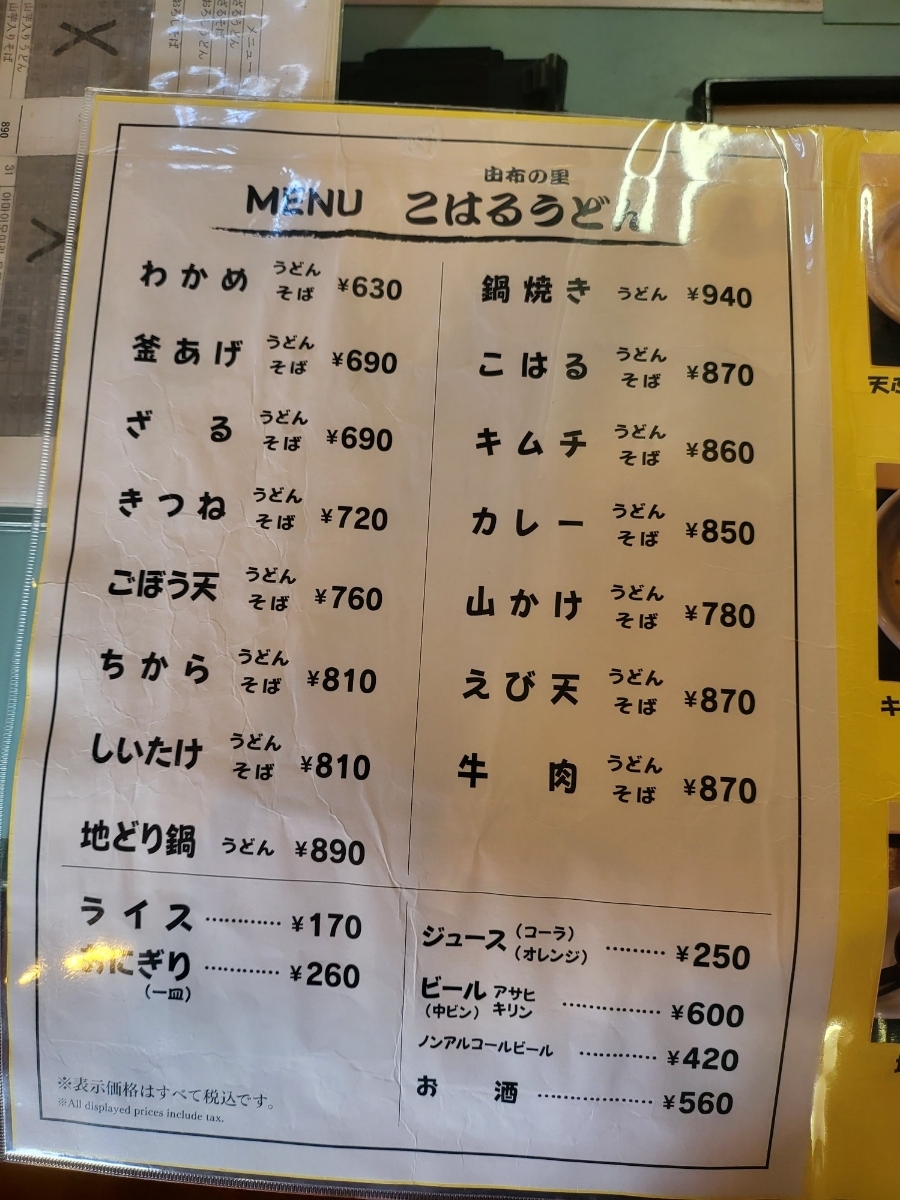 メニュー
ざるうどん
ざるそば
おろしうどん
おろしそば
山芋入りうどん
山芋入りそば
890
31
由布の里
MENU こはるうどん
わかめ うどん そば ¥630
釜あげ うどん そば ¥690
ざる うどん そば ¥690
きつね うどん そば ¥720
ごぼう天 うどん そば ¥760
ちから うどん そば ¥810
しいたけ うどん そば ¥810
地どり鍋 うどん ¥890
鍋焼き うどん ¥940
こはる うどん そば ¥870
キムチ うどん そば ¥860
カレー うどん そば ¥850
山かけ うどん そば ¥780
えび天 うどん そば ¥870
牛肉 うどん そば ¥870
ライス ………… ¥170
おにぎり ………… ¥260
（一皿）
ジュース（コーラ）（オレンジ） ……… ¥250
ビール（中ビン） アサヒ キリン …………… ¥600
ノンアルコールビール ………… ¥420
お酒 ……………… ¥560
※表示価格はすべて税込です。
※All displayed prices include tax.
天
キ